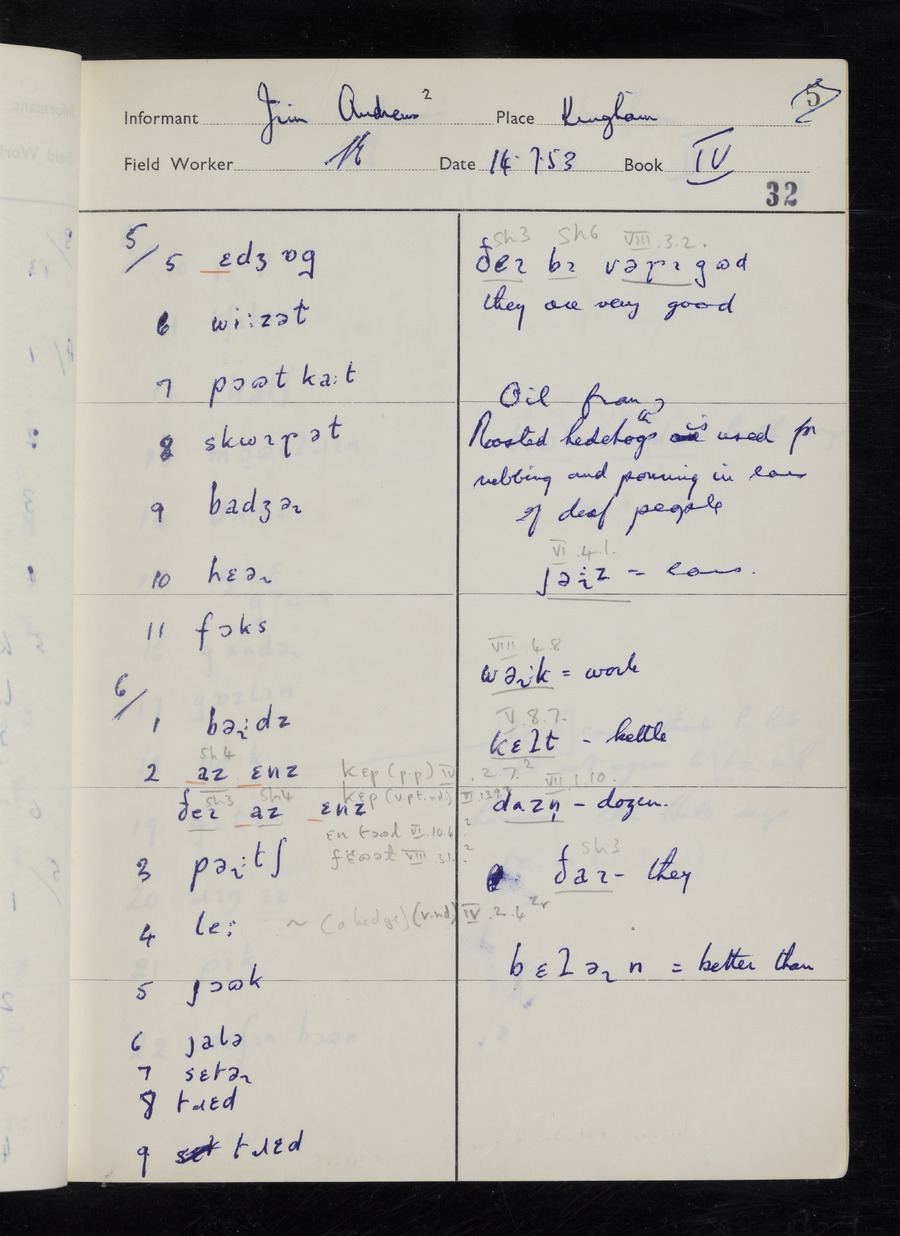 Informant Jim Andrews 2 Place Kingham 5
Field Worker Date 14.7.53 Book IV
32
5/ 5 ɛdʒ ɒg
6 wiːzət
7 pɔʊt kaːt
8 skwɪɾət
9 badʒəɹ
10 hɛəɹ
11 fɔks
6/
1 bəɹːdz
sh4
2 az ɛnz
kɛp (p.p) IV.2.7.2
sh3 sh4
ðeɪ az ɛnz
kɛp (v.pt.nd)
VI.10.6
VIII.3.1.2
3 pəɹːtʃ
4 leː
~ (a hedge) (v.nd) IV.2.4
5 jɔʊk
6 jalə
7 sɛtəɹ
8 tɹɛd
9 set tɹɛd
sh3 sh6 VIII.3.2.
ðeɪ bɪ vəɾɪ gʊd
they are very good
Oil from
Roasted hedehogs is used for
rubbing and pouring in ears
of deaf people
VI.4.1.
jəɹːz = ears.
VIII.4.8
wəɹːk = work
V.8.7.
kɛʔt - kettle
VII.1.10.
dazn̩ - dozen.
sh3
ðaɪ - they
bɛʔəɹ n = better than